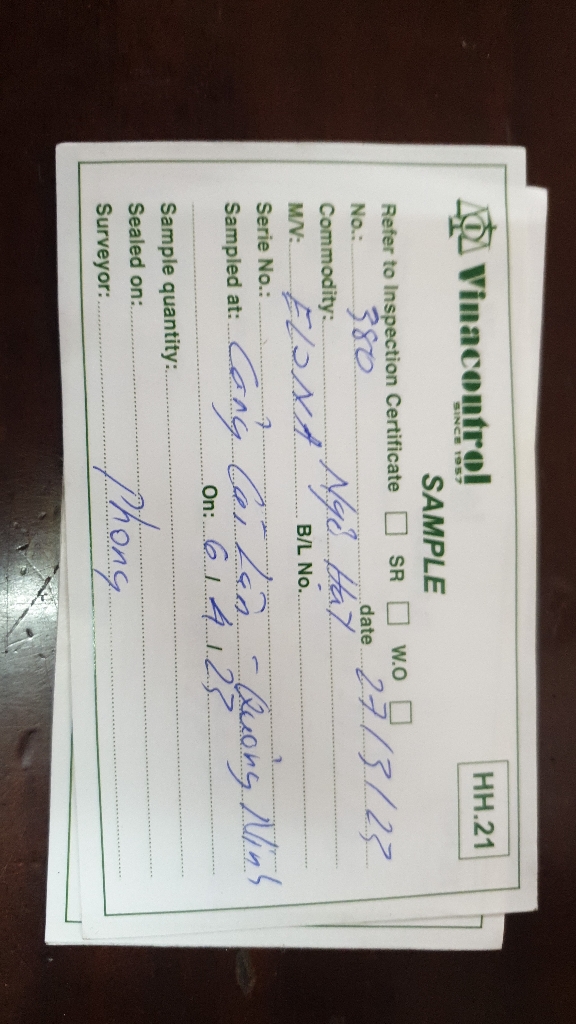 Vinacontrol
SINCE 1957
HH.21
SAMPLE
Refer to Inspection Certificate ☐ SR ☐ W.O ☐
No.: 380 date 27/3/25
Commodity: Ngô Hạt
M/V: B/L No.
Serie No.:
Sampled at: Cảng Cái Lân - Quảng Ninh
On: 6/4/25
Sample quantity:
Sealed on:
Surveyor: Phong